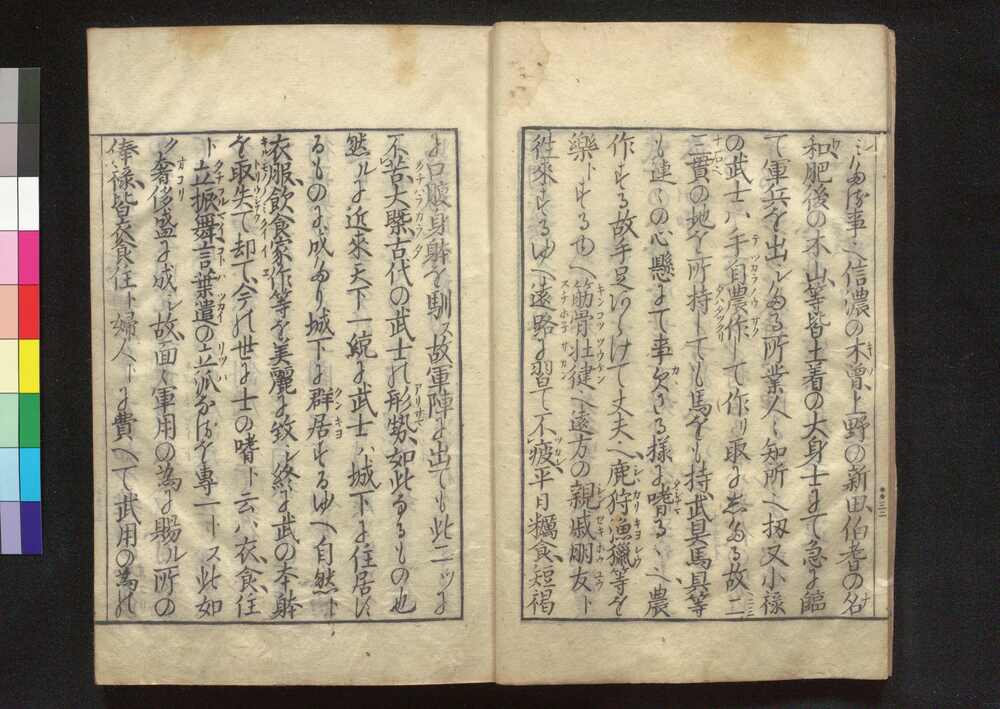 る事ハ信濃の木曽、上野の新田、伯耆の名
和、肥後の木山等皆土着の大身士にて急に臨
て軍兵を出しゝる所業人々知所ヘ扨又小禄
の武士ハ手自農作して作り取にしゝる故二
三貫の地を所持しても馬をも持武具馬具等
も連々の心懸にて事欠さる様に嗜る、ヘ農
作する故手足あらけて丈夫ヘ鹿狩漁獵等を
樂トするゆヘ筋骨壮健ヘ遠方の親戚朋友ト
徃來するゆヘ遠路に習て不疲平日糲食、短褐
に口腹身躰を馴ス故軍陣に出ても此二ツに
不苦大槩古代の武士の形勢、如此なるもの也
然ルに近來天下一統に武士ハ城下に住居す
るものに成より城下に群居するゆヘ自然ト
衣服飲食家作等を美麗に致し終に武の本躰
を取失て却て今の世に士の嗜ト云ハ衣、食、住
ト立振舞言葉遣の立派なるを專一トス此如
ク奢侈盛に成し故面々軍用の為に賜ル所の
俸禄皆衣食住ト婦人トに費ヘて武用の為の